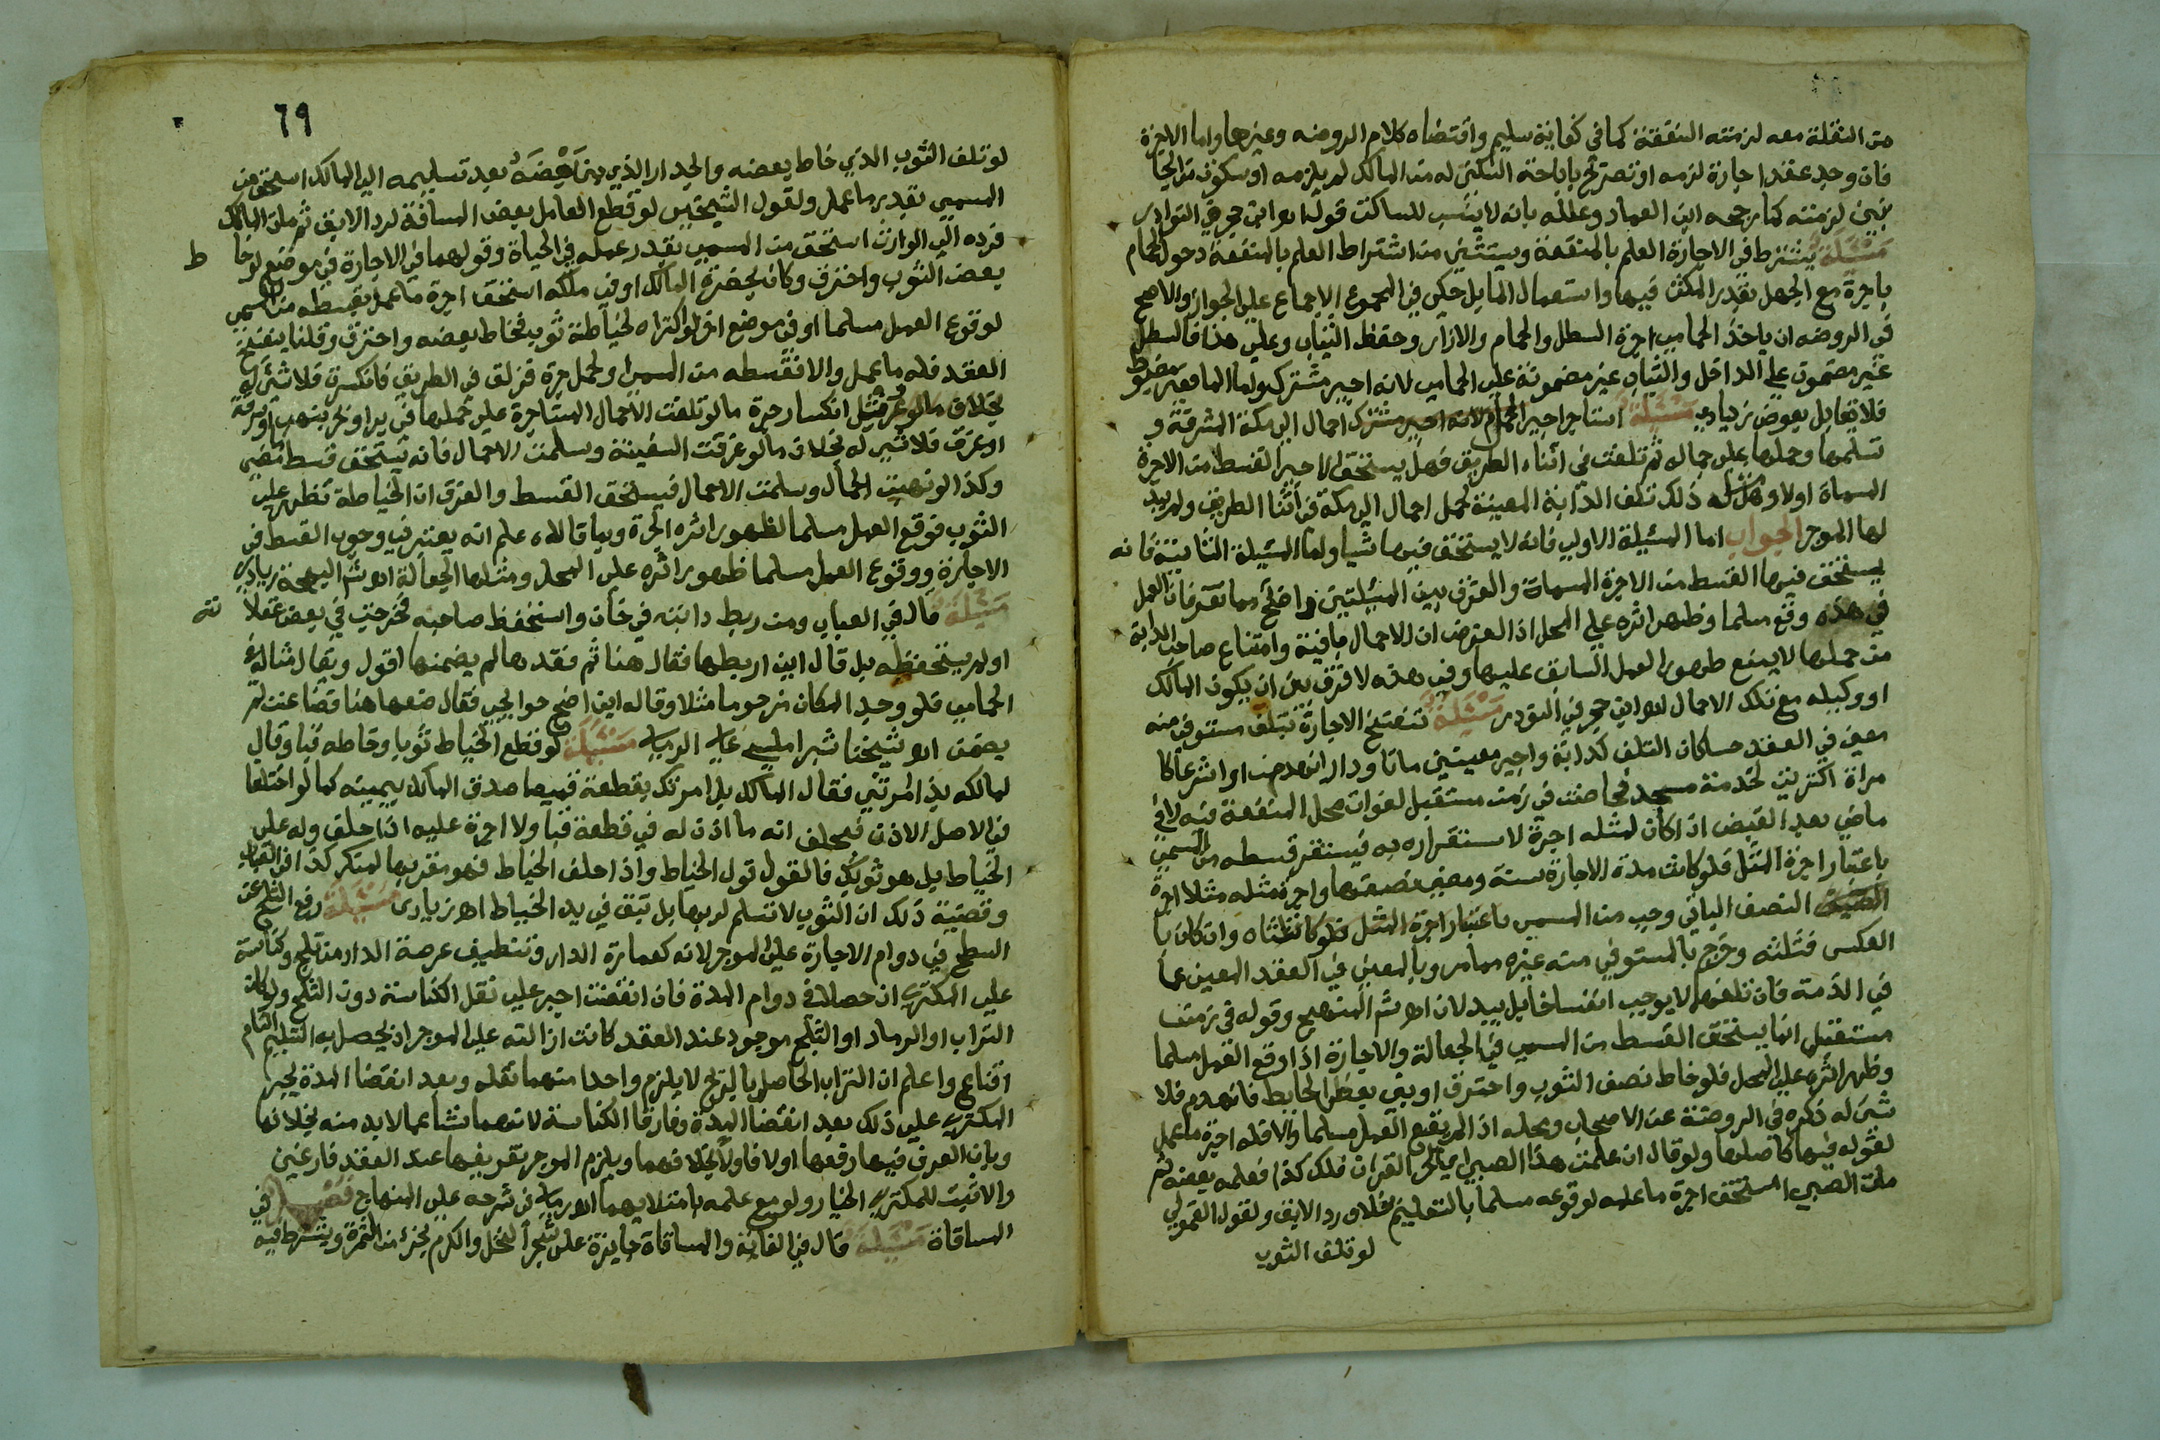 من النقلة معه لزمته النفقة كما في كفاية سليم واقتضاه كلام الروضه وغيرها واما الاجرة
فان وجد عقد اجارة لزمه او تصريح باباحة السكنى له من المالك لم يلزمه او سكوت من الجا
نبين لزمته كما رجحه ابن العماد وعلله بانه لا ينسب للساكت قول اه ابن حجر في النوادر
مسئلة يشترط في الاجارة العلم بالمنفعة ويستثنى من اشتراط العلم بالمنفعة دخول الحمام
باجرة مع الجهل بقدر المكث فيها واستعمال المايل حكي في المجموع الاجماع على الجواز والاصح
في الروضه ان ياخذ الحمامي اجرة السطل والحمام والازار وحفظ الثياب وعلى هذا فالسطل
غير مضمون على الداخل والثياب غير مضمونة على الحمامي لانه اجير مشترك واما الما فغير مضبوط
فلا يقابل بعوض زيادي مسئلة استاجر اجير احمال الى مكة المشرفة و
تسلمها وحملها على جماله ثم تلفت في اثناء الطريق فهل يستحق الاجير القسط من الاجرة
المسماة اولا وهل مثله ذلك تلف الدابة المعينة لحمل احمال الى مكة في اثنا الطريق ولم يبد
لها الموجر الجواب اما المسئلة الاولى فانه لا يستحق فيها شيا واما المسئلة الثانية فانه
يستحق فيها القسط من الاجرة المسماة والفرق بين المسئلتين واضح مما تقرر فان العمل
في هذه وقع مسلما وظهر اثره على المحل اذ الفرض ان الاحمال باقية وامتناع صاحب الدابة
من حملها لا يمنع ظهور العمل السابق عليها وفي هذه لا فرق بين ان يكون المالك
او وكيله مع تلك الاحمال اه ابن حجر في النوادر مسئلة تنفسخ الاجارة بتلف مستوفى منه
معين في العقد حسا كان التلف كدابة واجير معينين ماتا ودار انهدمت او اشرعا كا
مراة اكتريت لخدمة مسجد فحاضت في زمن مستقبل لفوات محل المنفعة فيه لا في
ماض بعد القبض اذا كان لمثله اجرة لاستقراره به فيستقر قسطه من المسمى
باعتبار اجرة المثل فلو كانت مدة الاجارة سنة ومضى نصفها واجرة مثله مثلا اجرة
النصف الباقي وجب من المسمى باعتبار اجرة المثل فلو كانت ثلثاه وان كان با
العكس فثلثه وخرج بالمستوفي منه غيره مما مر وبالمعين في العقد المعين عما
في الذمة فان تلفهما لا يوجب انفساخا بل يبدلان اه شرح المنهج وقوله في زمن
مستقبل انما يستحق القسط من المسمى في الجعالة والاجارة اذا وقع العمل مسلما
وظهر اثره على المحل فلو خاط نصف الثوب واحترق او بنى بعض الحايط فانهدم فلا
شي له ذكره في الروضة عن الاصحاب ومحله اذا لم يقع العمل مسلما والا فله اجرة ما عمل
لقوله فيها كاصلها ولو قال ان علمت هذا الصبي القران فلك كذا فعلمه بعضه ثم
مات الصبي استحق اجرة ما علمه لوقوعه مسلما بالتعليم بخلاف رد الابق ولقول القمولي
لو تلف الثوب
٦٩
لو تلف الثوب الذي خاط بعضه والجدار الذي بنى بعضه بعد تسليمه الى المالك استحق من
المسمى بقدر ما عمل ولقول الشيخين لو قطع العامل بعض المسافة لرد الابق ثم مات المالك
فرده الى الوارث استحق من المسمى بقدر عمله في الحياة وقولهما في الاجارة في موضع لو خا
ط
بعض الثوب واحترق وكان بحضرة المالك او في ملكه استحق اجرة ما عمل بقسطه من المسمى
لوقوع العمل مسلما او في موضع اخر لو اكتراه لخياطة ثوب فخاط بعضه واحترق وقلنا ينفسخ
العقد فله ما عمل والا فقسطه من المسمى او لحمل جرة فزلق في الطريق فانكسرت فلا شي له
بخلاف مالو مثل انكسار جرة مالو تلفت الاحمال المستاجرة على حملها في بر او بحر بنهب او سرقة
او غرق فلا شي له بخلاف مالو غرقت السفينة وسلمت الاحمال فانه يستحق قسط ما مضى
وكذا لو نهبت الجمال وسلمت الاحمال فيستحق القسط والفرق ان الخياطة تظهر على
الثوب فوقع العمل مسلما لظهور اثره الجرة وبما قالاه علم انه يعتبر في وجوب القسط في
الاجارة ووقوع العمل مسلما ظهور اثره على المحل ومثلها الجعالة اه شرح البهجة زيادي
مسئلة قال في العباب ومن ربط دابته في خان واستحفظ صاحبه فخرجت في بعض غفلا
ته
اولم يستحفظه بل قال اين اربطها فقال هنا ثم فقدها لم يضمنها اقول ويقال مثاله في
الحمامي فلو وجد المكان مزحوما مثلا وقال له اين اضع حوايجي فقال ضعها هنا فضاعت لم
يضمن اه شيخنا شبراملسي على الرملي مسئلة لو قطع الخياط ثوبا وخاطه قبا وقال
لمالكه بذا امرتني فقال المالك بل امرتك بقطعة قميصا صدق المالك بيمينه كما لو اختلفا
في الاصل الاذن فيحلف انه ما اذن له في قطعة قبا ولا اجرة عليه اذا حلف وله على
الخياط بل هو ثوبك فالقول قول الخياط واذا حلف الخياط فهو مقر بها لمنكر كذا في العباب
وقضية ذلك ان الثوب لا تسلم لربها بل تبقى في يد الخياط اه زيادي مسئلة رفع الثلج عن
السطح في دوام الاجارة على الموجر لانه كعمارة الدار وتنظيف عرصة الدار من ثلج وكناسة
على المكتري ان حصلا في دوام المدة فان انقضت اجبر على نقل الكناسة دون الثلج ولو كان
التراب او الرماد او الثلج موجود عند العقد كانت ازالته على الموجر اذ يحصل به التسليم التام
اقناع واعلم ان التراب الحاصل بالريح لا يلزم واحدا منهما نقله وبعد انقضا المدة يجبر
المكتري على ذلك بعد انقضا المدة وفارقا الكناسة لانهما نشا عما لا بد منه بخلافها
وبان العرف فيها رفعها اولا فاولا بخلافهما ويلزم الموجر تفريغها عند العقد فارغين
والا ثبت للمكتري الخيار ولو مع علمه بامتلايهما اه رملي في شرحه على المنهاج فصل في
المساقاة مسئلة قال في الغاية والمساقاة جايزة على شجر النخل والكرم بجزء من الثمرة ويشترط فيه